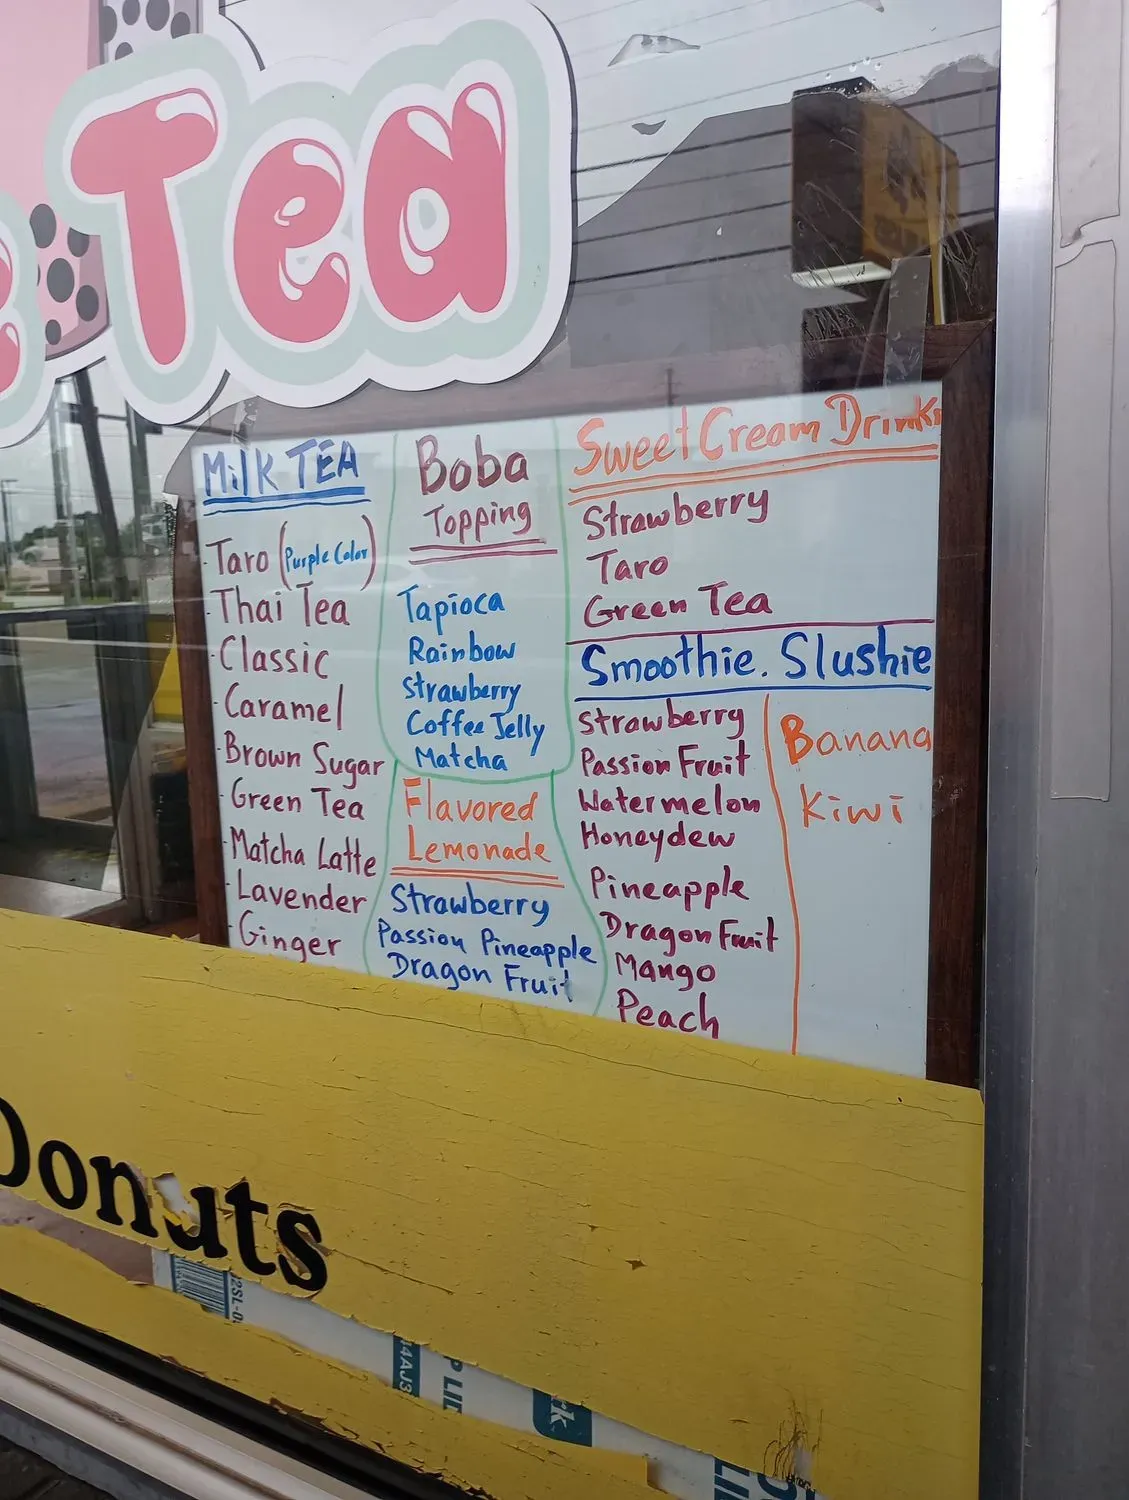 Tea
MilK TEA
Taro (Purple Color)
Thai Tea
Classic
Caramel
Brown Sugar
Green Tea
Matcha Latte
Lavender
Ginger
Boba
Topping
Tapioca
Rainbow
Strawberry
Coffee Jelly
Matcha
Flavored
Lemonade
Strawberry
Passion Pineapple
Dragon Fruit
Sweet Cream Drinks
Strawberry
Taro
Green Tea
Smoothie. Slushie
Strawberry
Passion Fruit
Watermelon
Honeydew
Pineapple
Dragon Fruit
Mango
Peach
Banana
Kiwi
Donuts